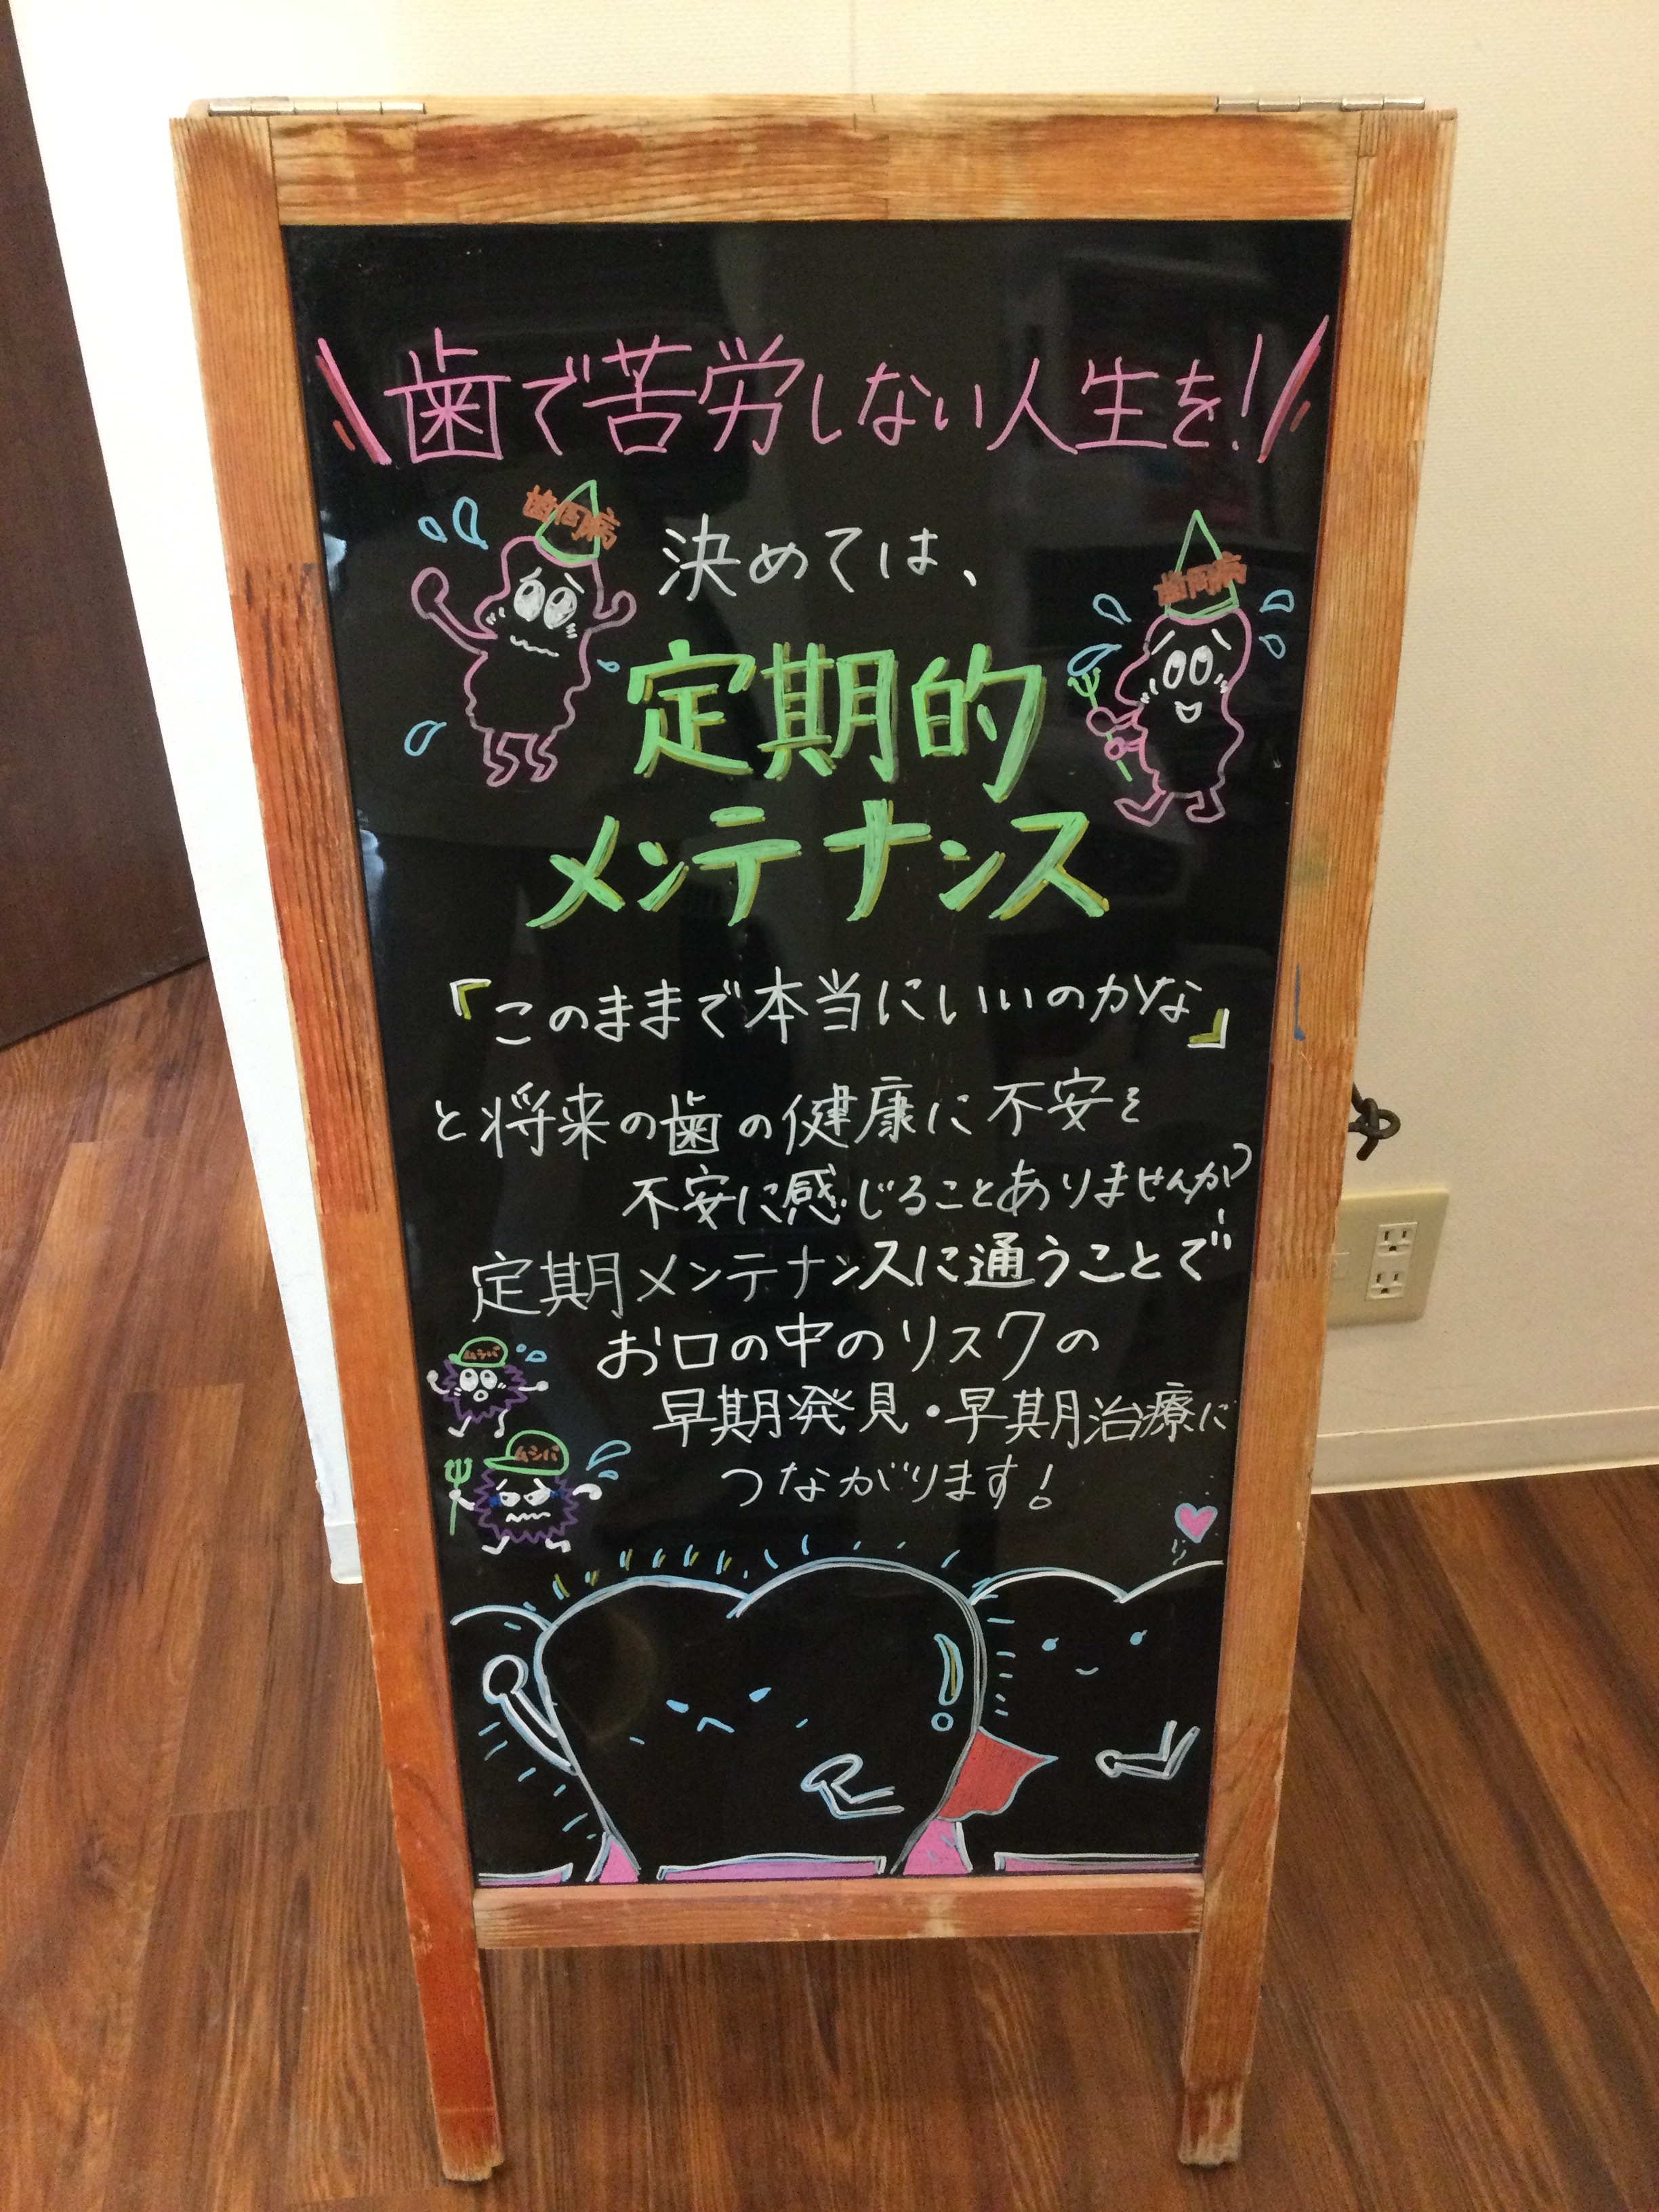 歯で苦労しない人生を!
歯周病
決めては、
歯周病
定期的
メンテナンス
『このままで本当にいいのかな』
と将来の歯の健康に不安を
不安に感じることありませんか?
定期メンテナンスに通うことで
お口の中のリスクの
ムシバ
早期発見・早期治療に
ムシバ
つながります!